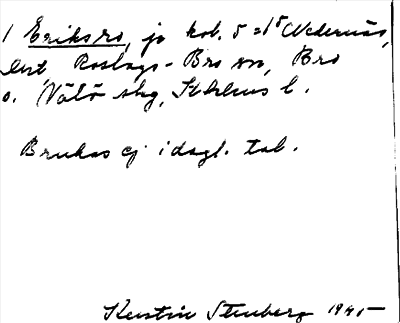 1 Eriksro, jo kol. 5 = 1⁵ Nedernäs,
lht, Roslags-Bro sn, Bro
o. Vätö skg, Sthlms l.
Brukas ej i dagl. tal.
Kerstin Stenberg 1945